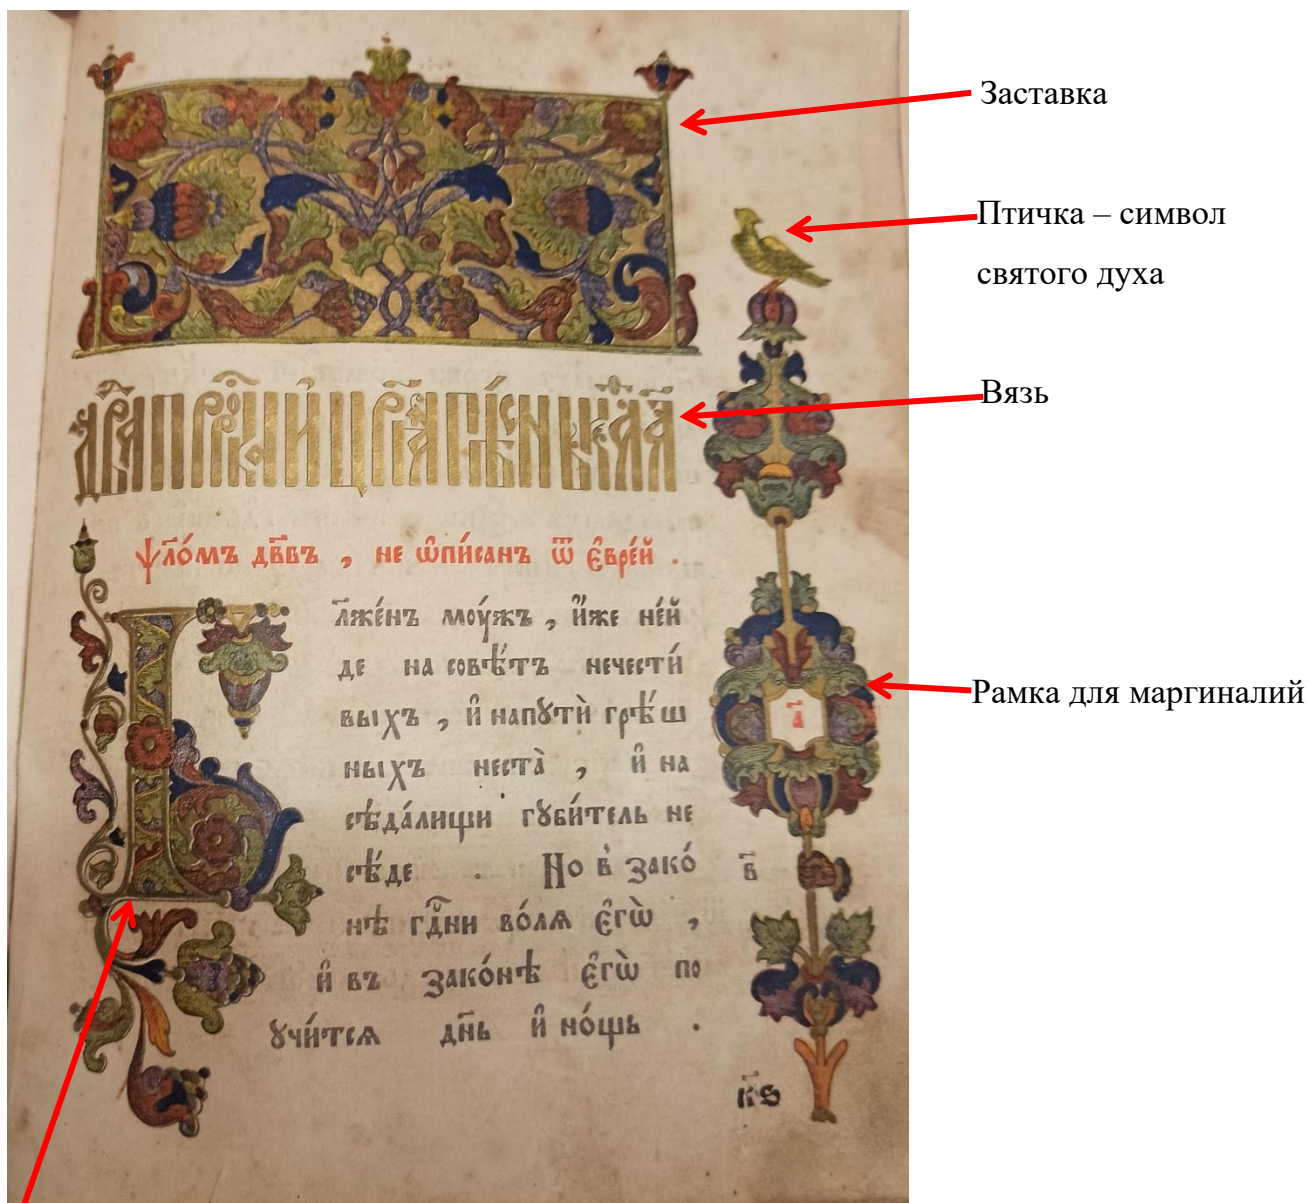 Заставка
Птичка – символ
святого духа
Вязь
Рамка для маргиналий
ѱл҃о́мъ дв҃двъ , не ѡ҆пи́санъ ѿ є҆вре́й .
Бл҃же́нъ моу́жъ , и҆́же не́й
де на совѣ́тъ нечести́
выхъ , и҆ напꙋтѝ грѣ́ш
ныхъ неста̀ , и҆ на
сѣда́лищи гꙋби́тель не
сѣ́де . Но в̾ зако́
нѣ гд҃ни во́лѧ є҆гѡ̀ ,
и҆ въ зако́нѣ є҆гѡ̀ по
ꙋчи́тсѧ дн҃ь и҆ но́щь .
а҃
в҃
к҃ѕ